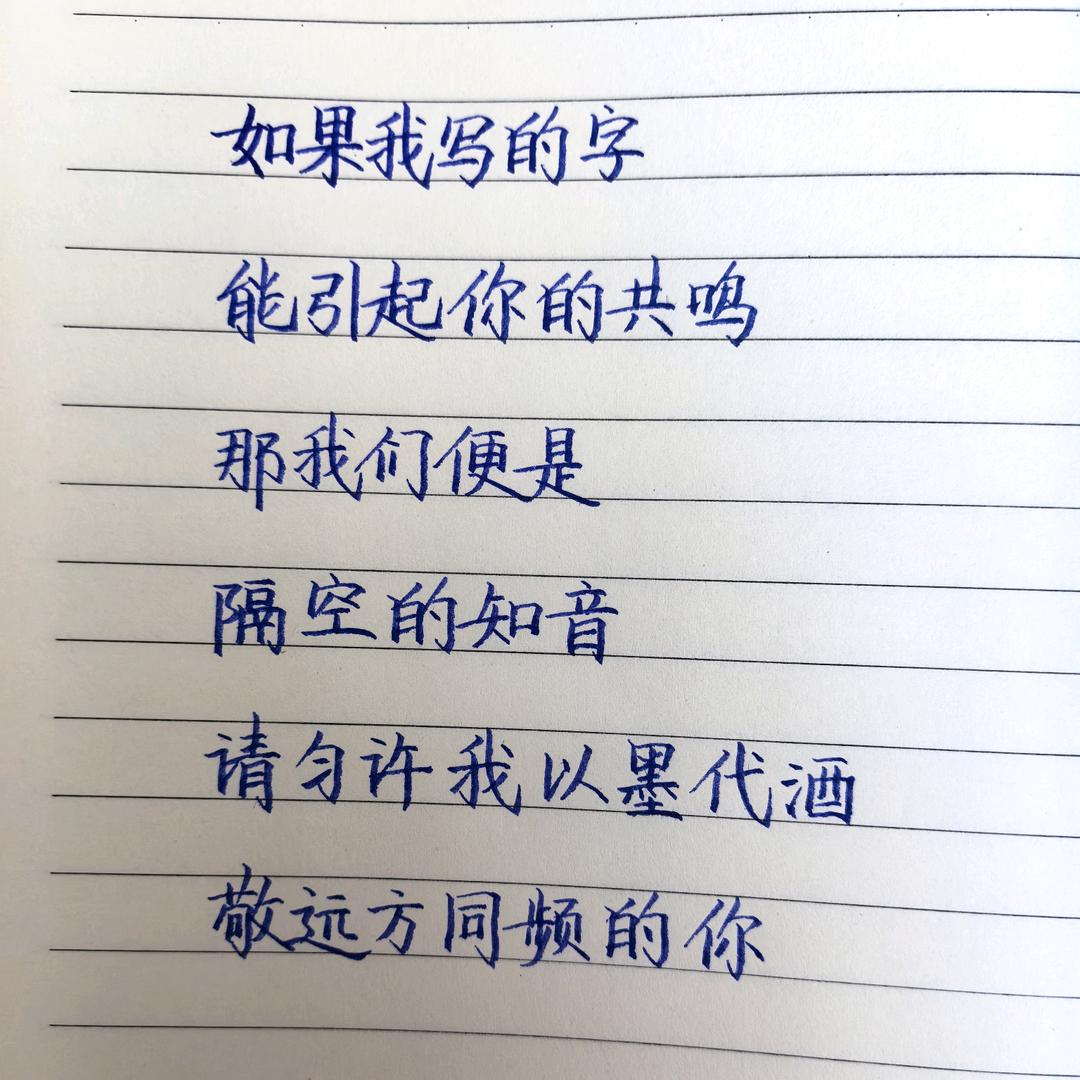 如果我写的字
能引起你的共鸣
那我们便是
隔空的知音
请匀许我以墨代酒
敬远方同频的你